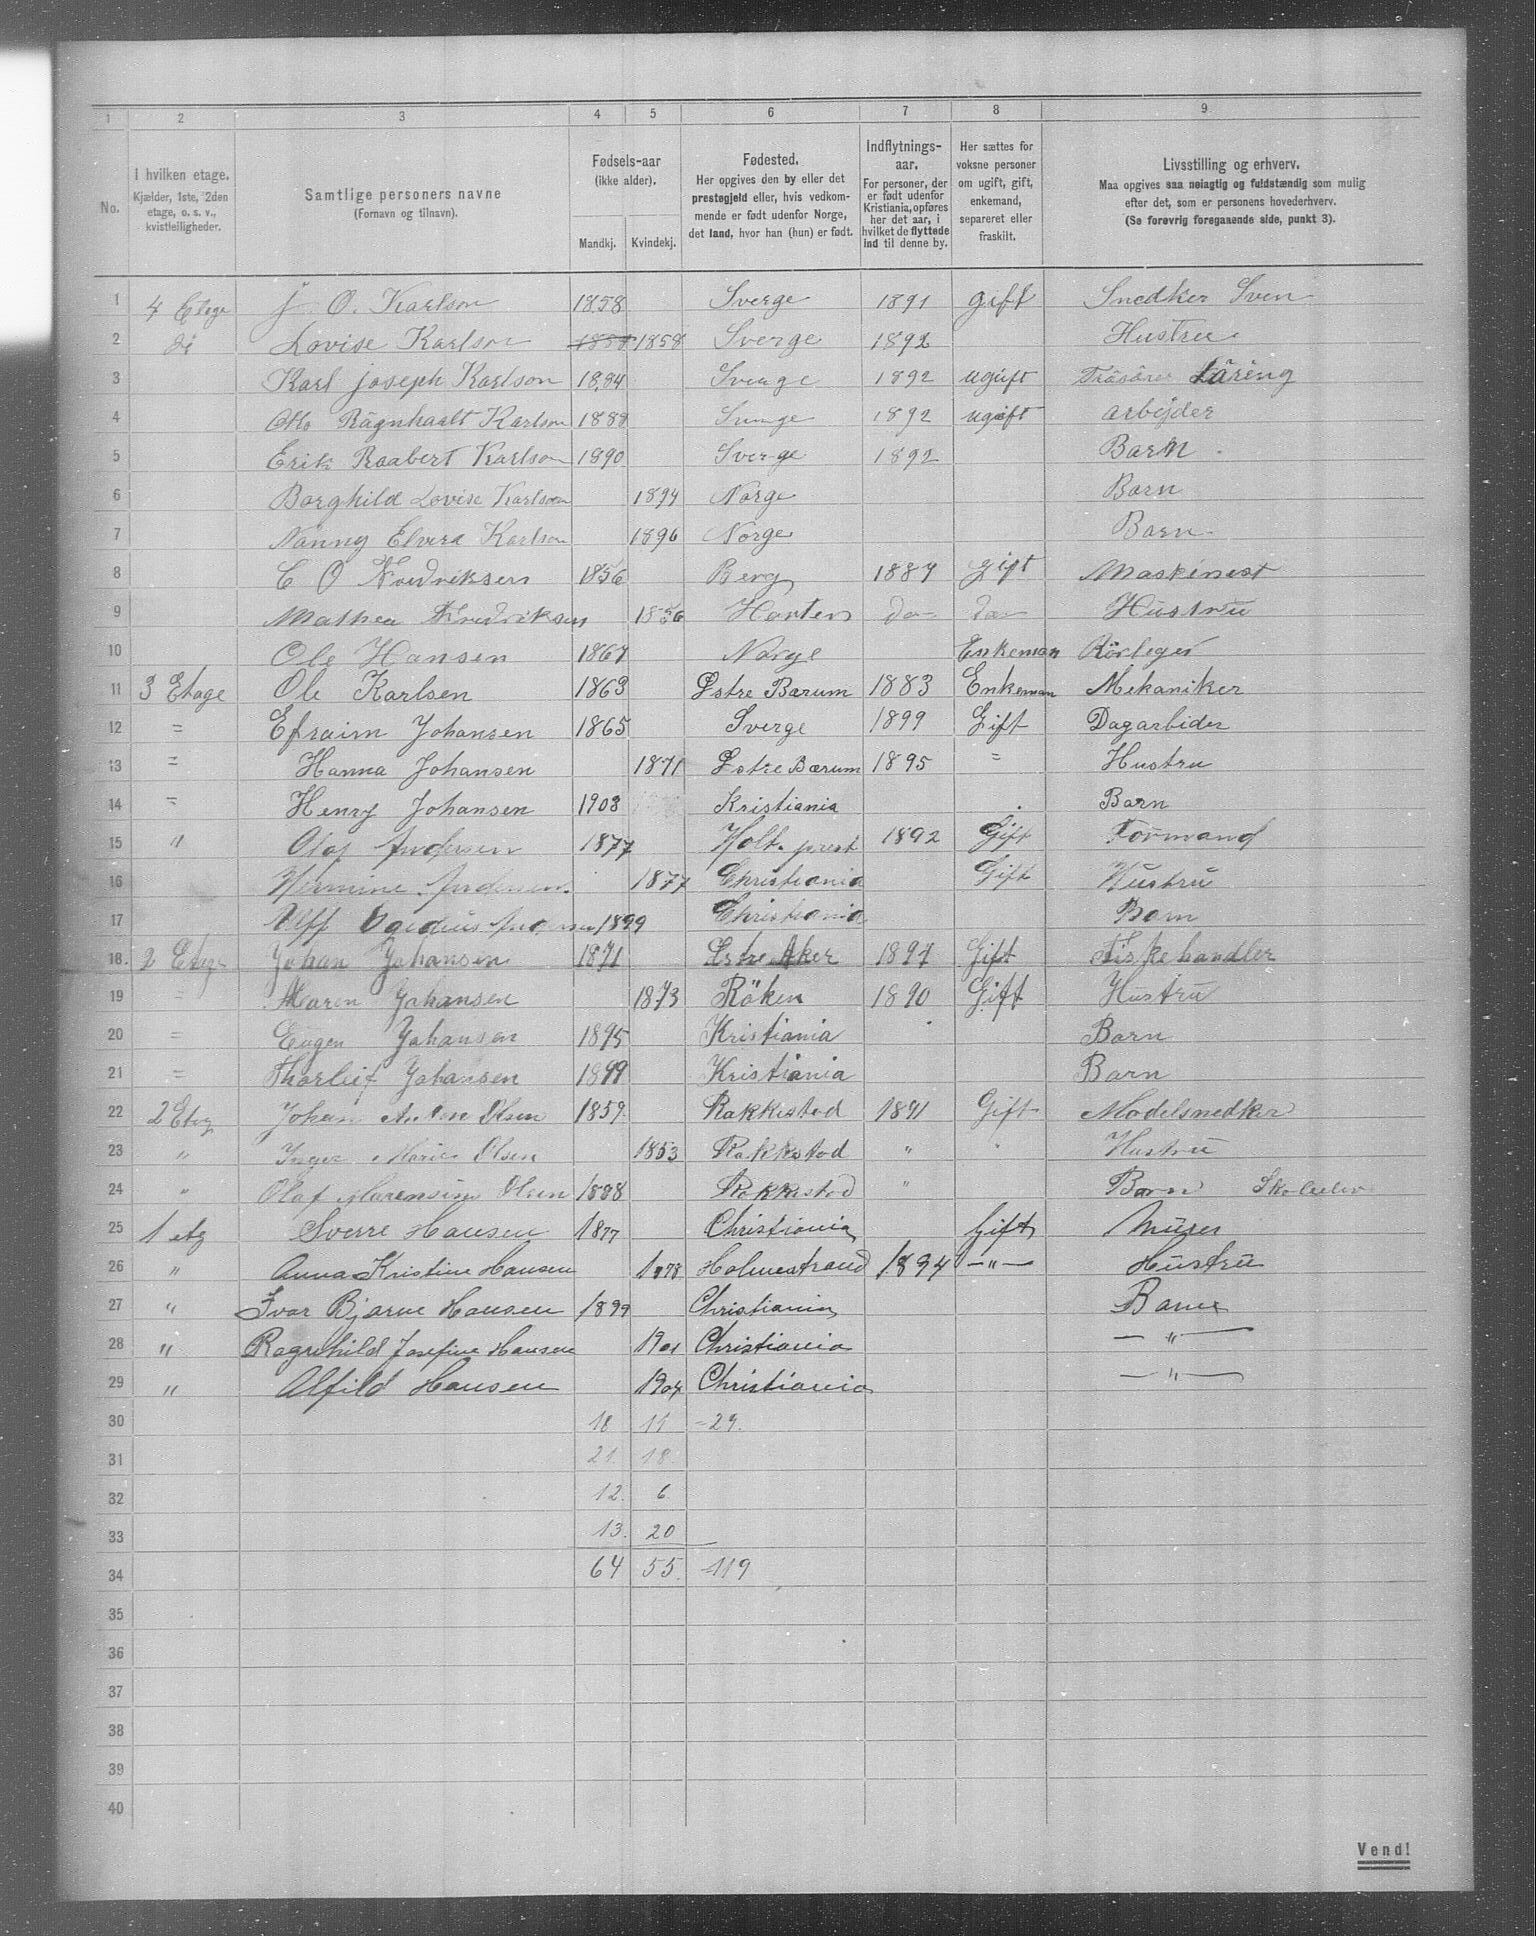 1 2 3 4 5 6 7 8 9
No.
I hvilken etage.
Kjælder, 1ste, 2den
etage, o. s. v.,
kvistleiligheder.
Samtlige personers navne
(Fornavn og tilnavn).
Fødsels-aar
(ikke alder).
Mandkj. Kvindekj.
Fødested.
Her opgives den by eller det
prestegjeld eller, hvis vedkom-
mende er født udenfor Norge,
det land, hvor han (hun) er født.
Indflytnings-
aar.
For personer, der
er født udenfor
Kristiania, opføres
her det aar, i
hvilket de flyttede
ind til denne by.
Her sættes for
voksne personer
om ugift, gift,
enkemand,
separeret eller
fraskilt.
Livsstilling og erhverv.
Maa opgives saa nøiagtig og fuldstændig som mulig
efter det, som er personens hovederhverv.
(Se forøvrig foregaaende side, punkt 3).
1 4 Etage J O. Karlson 1858 Sverge 1891 gift Snedker Sven
2 do Lovise Karlson 1858 1858 Sverge 1892 Hustru
3 Karl Joseph Karlson 1884 Sverge 1892 ugift Läreng
4 Otto Ragnhaalt Karlson 1888 Sverge 1892 ugift arbejder
5 Erik Raabert Karlson 1890 Sverge 1892 Barn
6 Borghild Lovise Karlson 1894 Norge Barn
7 Nanny Elvira Karlson 1896 Norge Barn
8 C O Fredriksen 1856 Berg 1887 gift Maskinest
9 Mathea Fredriksen 1856 Horten do do Hustru
10 Ole Hansen 1867 Norge Enkeman Rörleger
11 3 Etage Ole Karlsen 1863 Østre Barum 1883 Enkeman Mekaniker
12 = Efraim Johansen 1865 Sverge 1899 Gift Dagarbider
13 = Hanna Johansen 1871 Østre Bærum 1895 = Hustru
14 = Henry Johansen 1903 Kristiania Barn
15 " Olaf Andersen 1877 Holt. prest 1892 Gift Formand
16 Hermine Andersen 1877 Christiania Gift Hustru
17 Ulff Egedius Andersen 1899 Christiania Barn
18. 2 Etage Johan Johansen 1871 Østre Aker 1897 Gift Fiskehandler
19 = Maren Johansen 1873 Röken 1890 Gift Hustru
20 = Eugen Johansen 1895 Kristiania Barn
21 = Thorleif Johansen 1899 Kristiania Barn
22 2 Etag Johan Anton Olsen 1859 Rakkestad 1891 Gift Modelsnedker
23 " Inger Marie Olsen 1853 Rakkstad " " Hustru
24 " Olaf Marensius Olsen 1888 Rakkestad " Barn Skoleelev
25 1 etg Sverre Hansen 1877 Christiania Gift Murer
26 " Anna Kristine Hansen 1878 Holmestrand 1894 —"— Hustru
27 " Ivar Bjarne Hansen 1899 Christiania Barn
28 " Ragnhild Josefine Hansen 1901 Christiania —"—
29 " Alfild Hansen 1904 Christiania —"—
30 18 11 -29.
31 21. 18.
32 12. 6.
33 13. 20
34 64 55. 119
35
36
37
38
39
40
Vend!